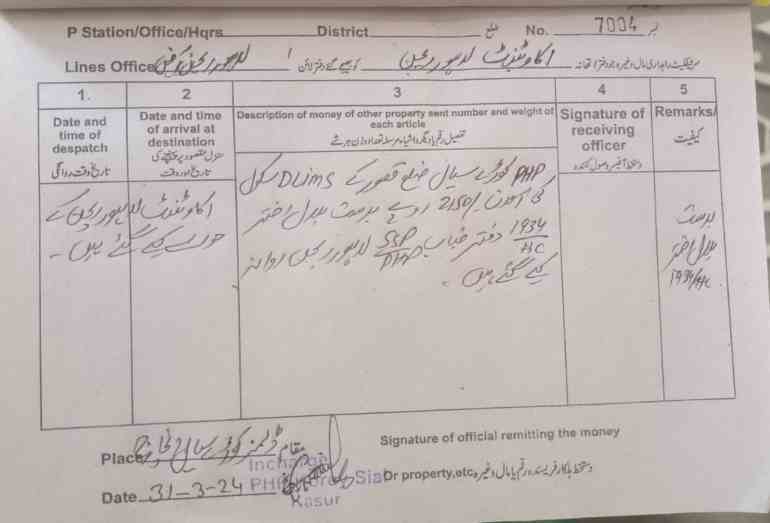 P Station/Office/Hqrs District ضلع No. 7004 نمبر
Lines Office لاہور ریجن اکاؤنٹنٹ لاہور ریجن
1. 2 3 4 5
Date and time of despatch
تاریخ وقت روانگی
Date and time of arrival at destination
منزل مقصود پر پہنچنے کی تاریخ اور وقت
Description of money of other property sent number and weight of each article
Signature of receiving officer
Remarks/
کیفیت
PHP کوڑے سیال ضلع قصور کے DLims سکول
کی آمدن 2150/ روپے بدست عبدل اختر
1934/HC دفتر جناب SSP/PHP لاہور ریجن روانہ
کیے گئے ہیں۔
اکاؤنٹنٹ لاہور ریجن کے
حوالے کیے گئے ہیں۔
بدست
اختر
1934/HC
Place مقام
Signature of official remitting the money
Or property,etc
Date 31-3-24
Incharge
PHP Sial
Kasur